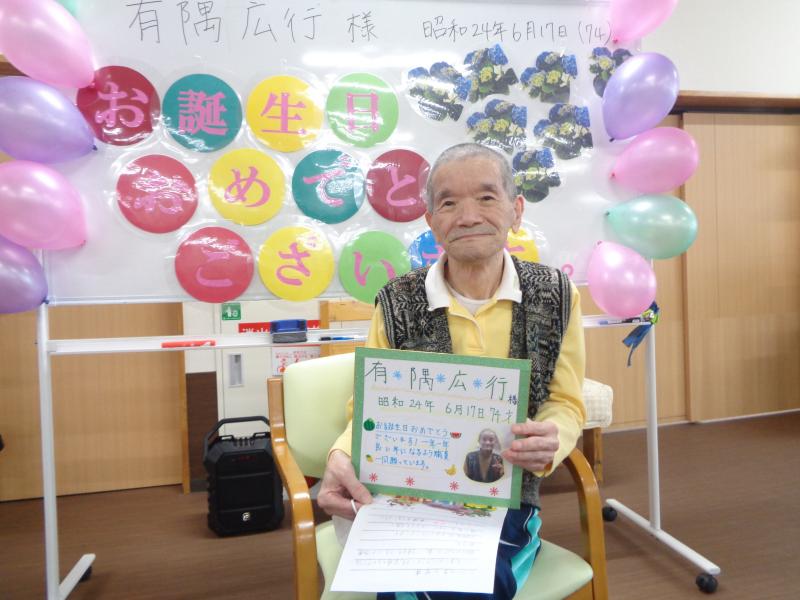 有隅広行様 昭和24年6月17日(74)
お誕生日
おめでとう
ございます。
有*隅*広*行様
昭和24年 6月17日 74才
お誕生日おめでとう
ございます!一年一年
良い年になるよう職員
一同願っています。